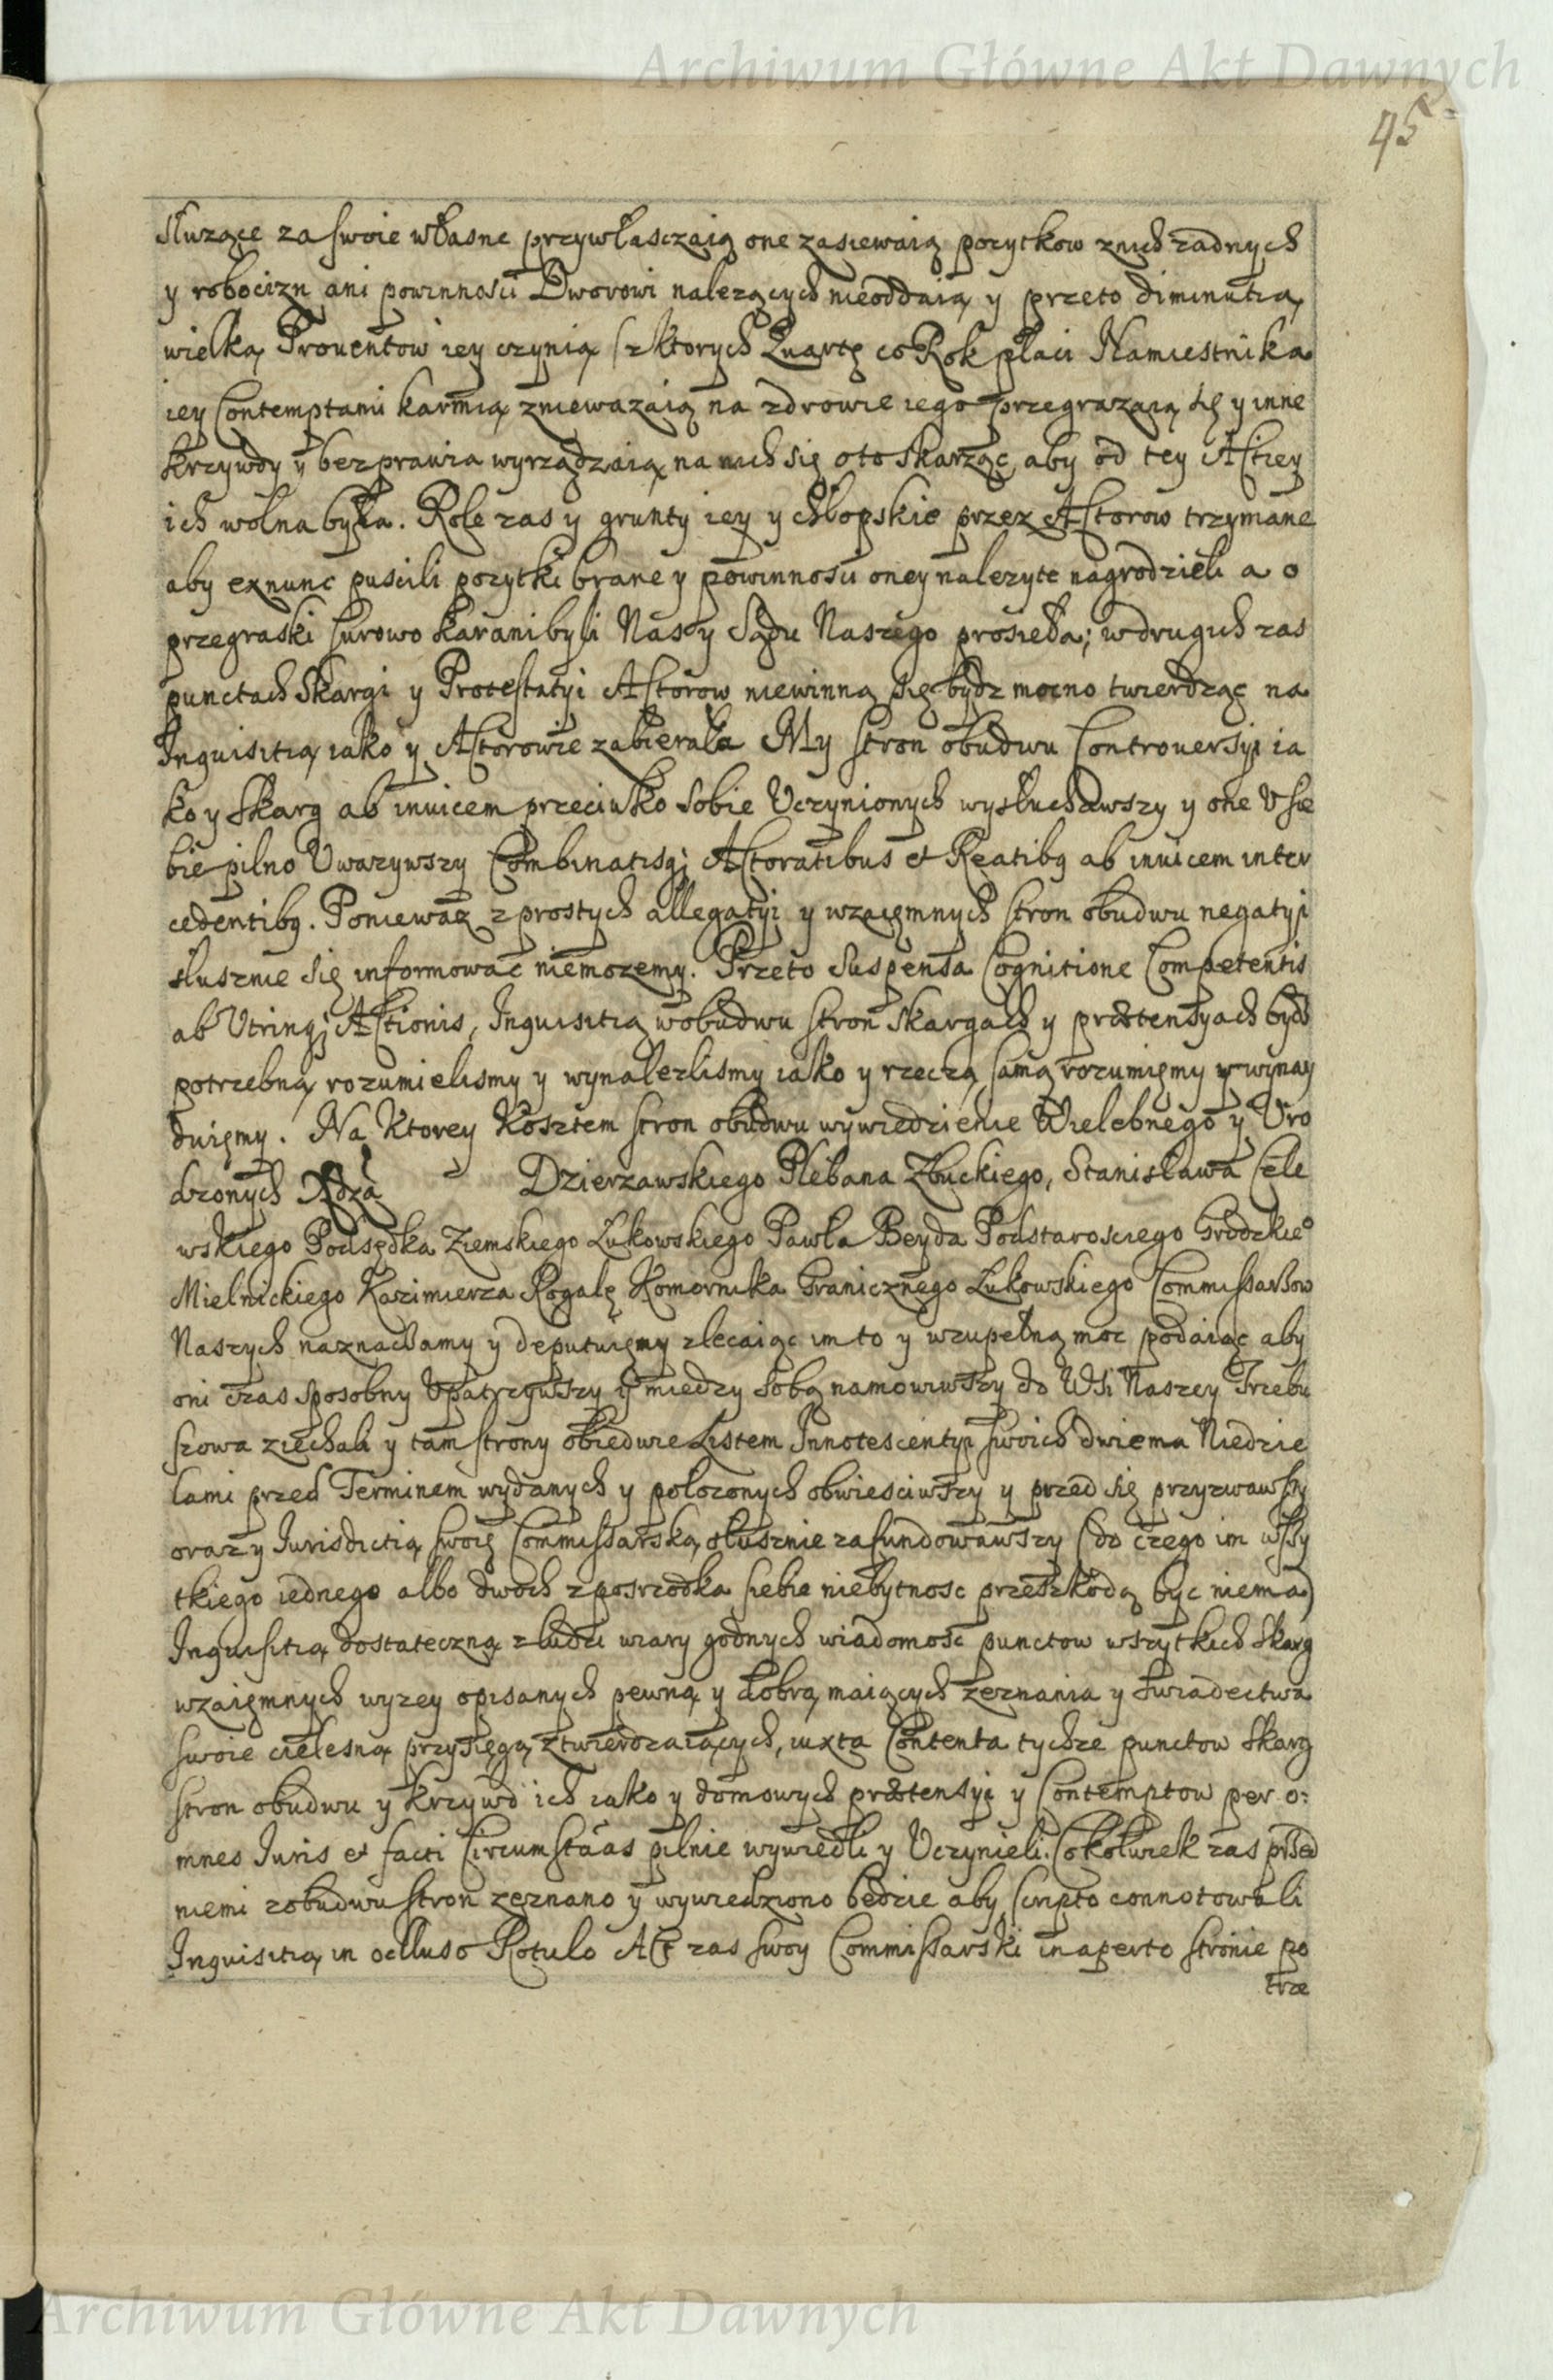 Archiwum Główne Akt Dawnych
45
służące za swoie własne przywłasczaią one zasiewaią pozytkow znich zadnych
y robocizn ani powinnosci Dworowi nalezących nieoddaią y przeto diminutią
wielką Prouentow iey czynią (z ktorych Quartę co Rok płaci Namiestnika
iey Contemptami karmią zniewazaią na zdrowie iego przegrazaią się y inne
krzywdy y bezprawia wyrządzaią na nich się oto skarząc aby od tey Actiey
ich wolna była. Role zas y grunty iey y chłopskie przez Actorow trzymane
aby exnunc puscili pozytki brane y powinnosci oney nalezyte nagrodzieli a o
przegraski surowo karani byli Nas y Sądu Naszego prosieła; w drugich zas
punctach Skargi y Protestatyi Actorow niewinną się bydz mocno twierdząc na
Inquisitią iako y Actorowie zabierała My stron obudwu Controuersyi ia
ko y Skarg ab inuicem przeciwko sobie Uczynionych wysłuchawszy y one U sie
bie pilno Uwazywszy Combinatisq; Actoratibus et Reatibq ab inuicem inter
cedentibq. Poniewaz z prostych allegatyi y wzaięmnych stron obudwu negatyi
słusznie się informować niemozemy. Przeto Suspensa Cognitione Competentis
ab Utrinq; Actionis, Inquisitią wobudwu stron Skargach y prætensyach bydz
potrzebną rozumielismy y wynalezlismy iako y rzeczą samą rozumięmy y wynay
duięmy. Na ktorey Kosztem stron obudwu wywiedzienie Wielebnego y Uro
dzonych Xdza Dzierzawskiego Plebana Zbuckiego, Stanisława Cele
wskiego Podsędka Ziemskiego Łukowskiego Pawła Beyda Podstarosciego Grodzkieo
Mielnickiego Kazimierza Rogalę Komornika Granicznego Łukowskiego Commissarzow
Naszych naznaczamy y deputuięmy zlecaiąc im to y wzupełną moc podaiąc aby
oni czas sposobny Upatrzywszy y miedzy sobą namowiwszy do Wsi Naszey Trzebu
szowa ziechali y tam strony obiedwie Listem Innotescentyi swoich dwiema Niedzie
lami przed Terminem wydanych y połozonych obwiesciwszy y przed się przyzwawszy
oraz y Jurisdictią swoię Commissarską słusznie zafundowawszy (do czego im wszy
tkiego iednego albo dwoch z posrzodka siebie niebytnosc przeszkodą byc niema)
Inquisitią dostateczną z ludzi wiary godnych wiadomosc punctow wszytkich Skarg
wzaięmnych wyzey opisanych pewną y dobrą maiących zeznania y swiadectwa
swoie cielesną przysięgą ztwierdzaiących, iuxta Contenta tychze punctow Skarg
stron obudwu y krzywd ich iako y domowych prætensyi y Contemptow per o:
mnes Juris et facti Circumstãas pilnie wywiedli y Uczynieli. Cokolwiek zas przed
niemi zobudwu stron zeznano y wywiedziono będzie aby scripto connotowali
Inquisitią in ocluso Rotulo Act zas swoy Commissarski in aperto stronie po
trze
Archiwum Główne Akt Dawnych